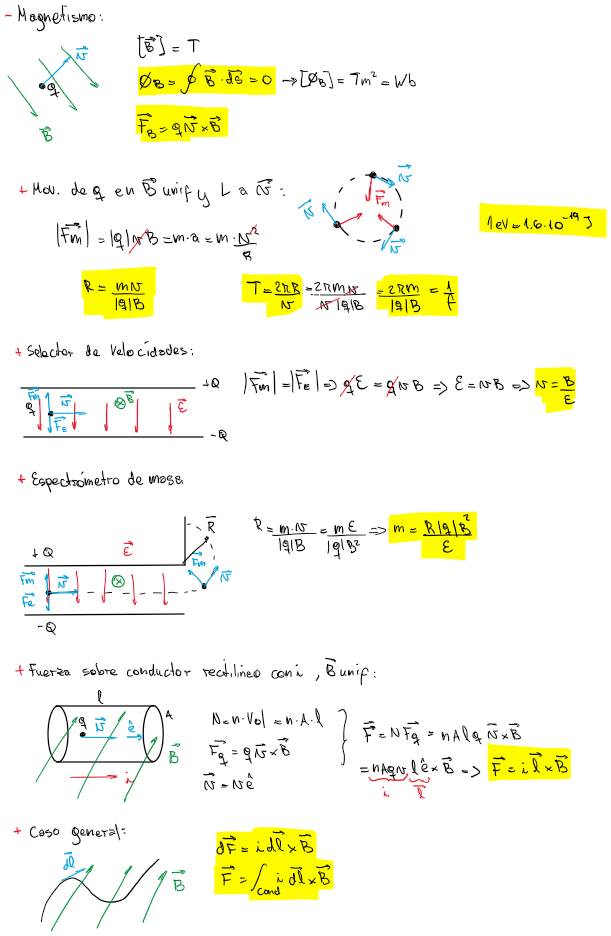 - Magnetismo:
[B⃗] = T
v⃗
q
B⃗
Ø_B = ∮ B⃗ · dS⃗ = 0 → [Ø_B] = Tm² = Wb
F⃗_B = q v⃗ × B⃗
+ Mov. de q en B⃗ unif y ⊥ a v⃗ :
v⃗
F⃗m
v⃗
v⃗
|F⃗m| = |q| v B = m·a = m · v²/R
1 eV = 1.6·10⁻¹⁹ J
R = mv/|q|B
T = 2πR/v = 2πmv/v|q|B = 2πm/|q|B = 1/f
+ Selector de velocidades:
+Q
F⃗m v⃗ ⊗B⃗ ε⃗
q
F⃗E
-Q
|F⃗m| = |F⃗E| => qε = qvB => ε = vB => v = B/ε
+ Espectrómetro de masa
R⃗
+Q ε⃗
F⃗m
F⃗m v⃗ ⊗ v⃗
F⃗e
-Q
R = m·v/|q|B = mε/|q|B² => m = R|q|B²/ε
+ Fuerza sobre conductor rectilineo con i , B⃗ unif:
l
A
q v⃗ ê
B⃗
i
N = n·Vol = n·A·l
F⃗q = q v⃗ × B⃗
v⃗ = v ê
F⃗ = N F⃗q = n A l q v⃗ × B⃗
= nAqv l ê × B⃗ => F⃗ = i l⃗ × B⃗
i l⃗
+ Caso general:
dl⃗
B⃗
dF⃗ = i dl⃗ × B⃗
F⃗ = ∫cond i dl⃗ × B⃗